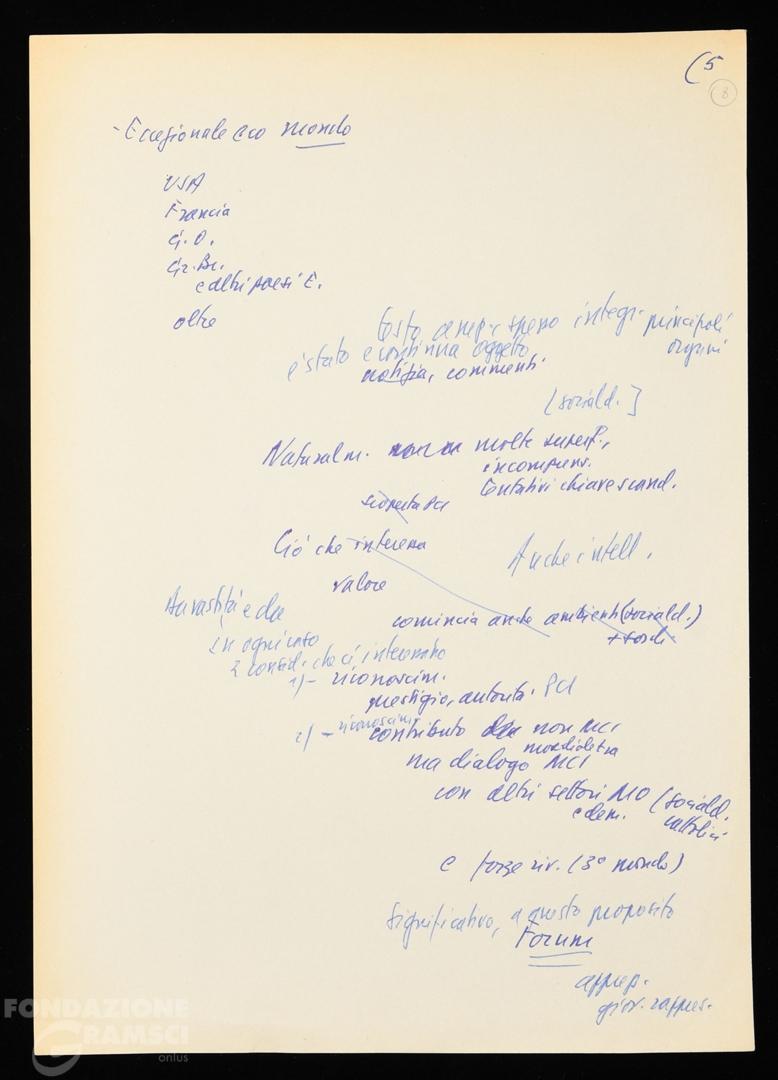 (5
8
- Eccezionale eco mondo
USA
Francia
G. O.
Gr. Br.
e altri paesi E.
oltre
testo integr. principali
organi
è stato e continua oggetto
notizia, commenti
[sociald.]
Naturalm. molte superf.,
incomprens.
tentativi chiave scand.
Ciò che interessa
Anche intell.
valore
comincia anche ambienti (sociald.)
in ogni caso
2 consid. che ci interessano
1/- riconoscim.
prestigio, autorità PCI
2/- riconoscim.
contributo non MCI
ma dialogo MCI
con altri settori MO (sociald.
e dem. cattolici
e forze riv. (3° mondo)
Significativo, a questo proposito
Forum
giov. rappres.
FONDAZIONE
GRAMSCI
onlus